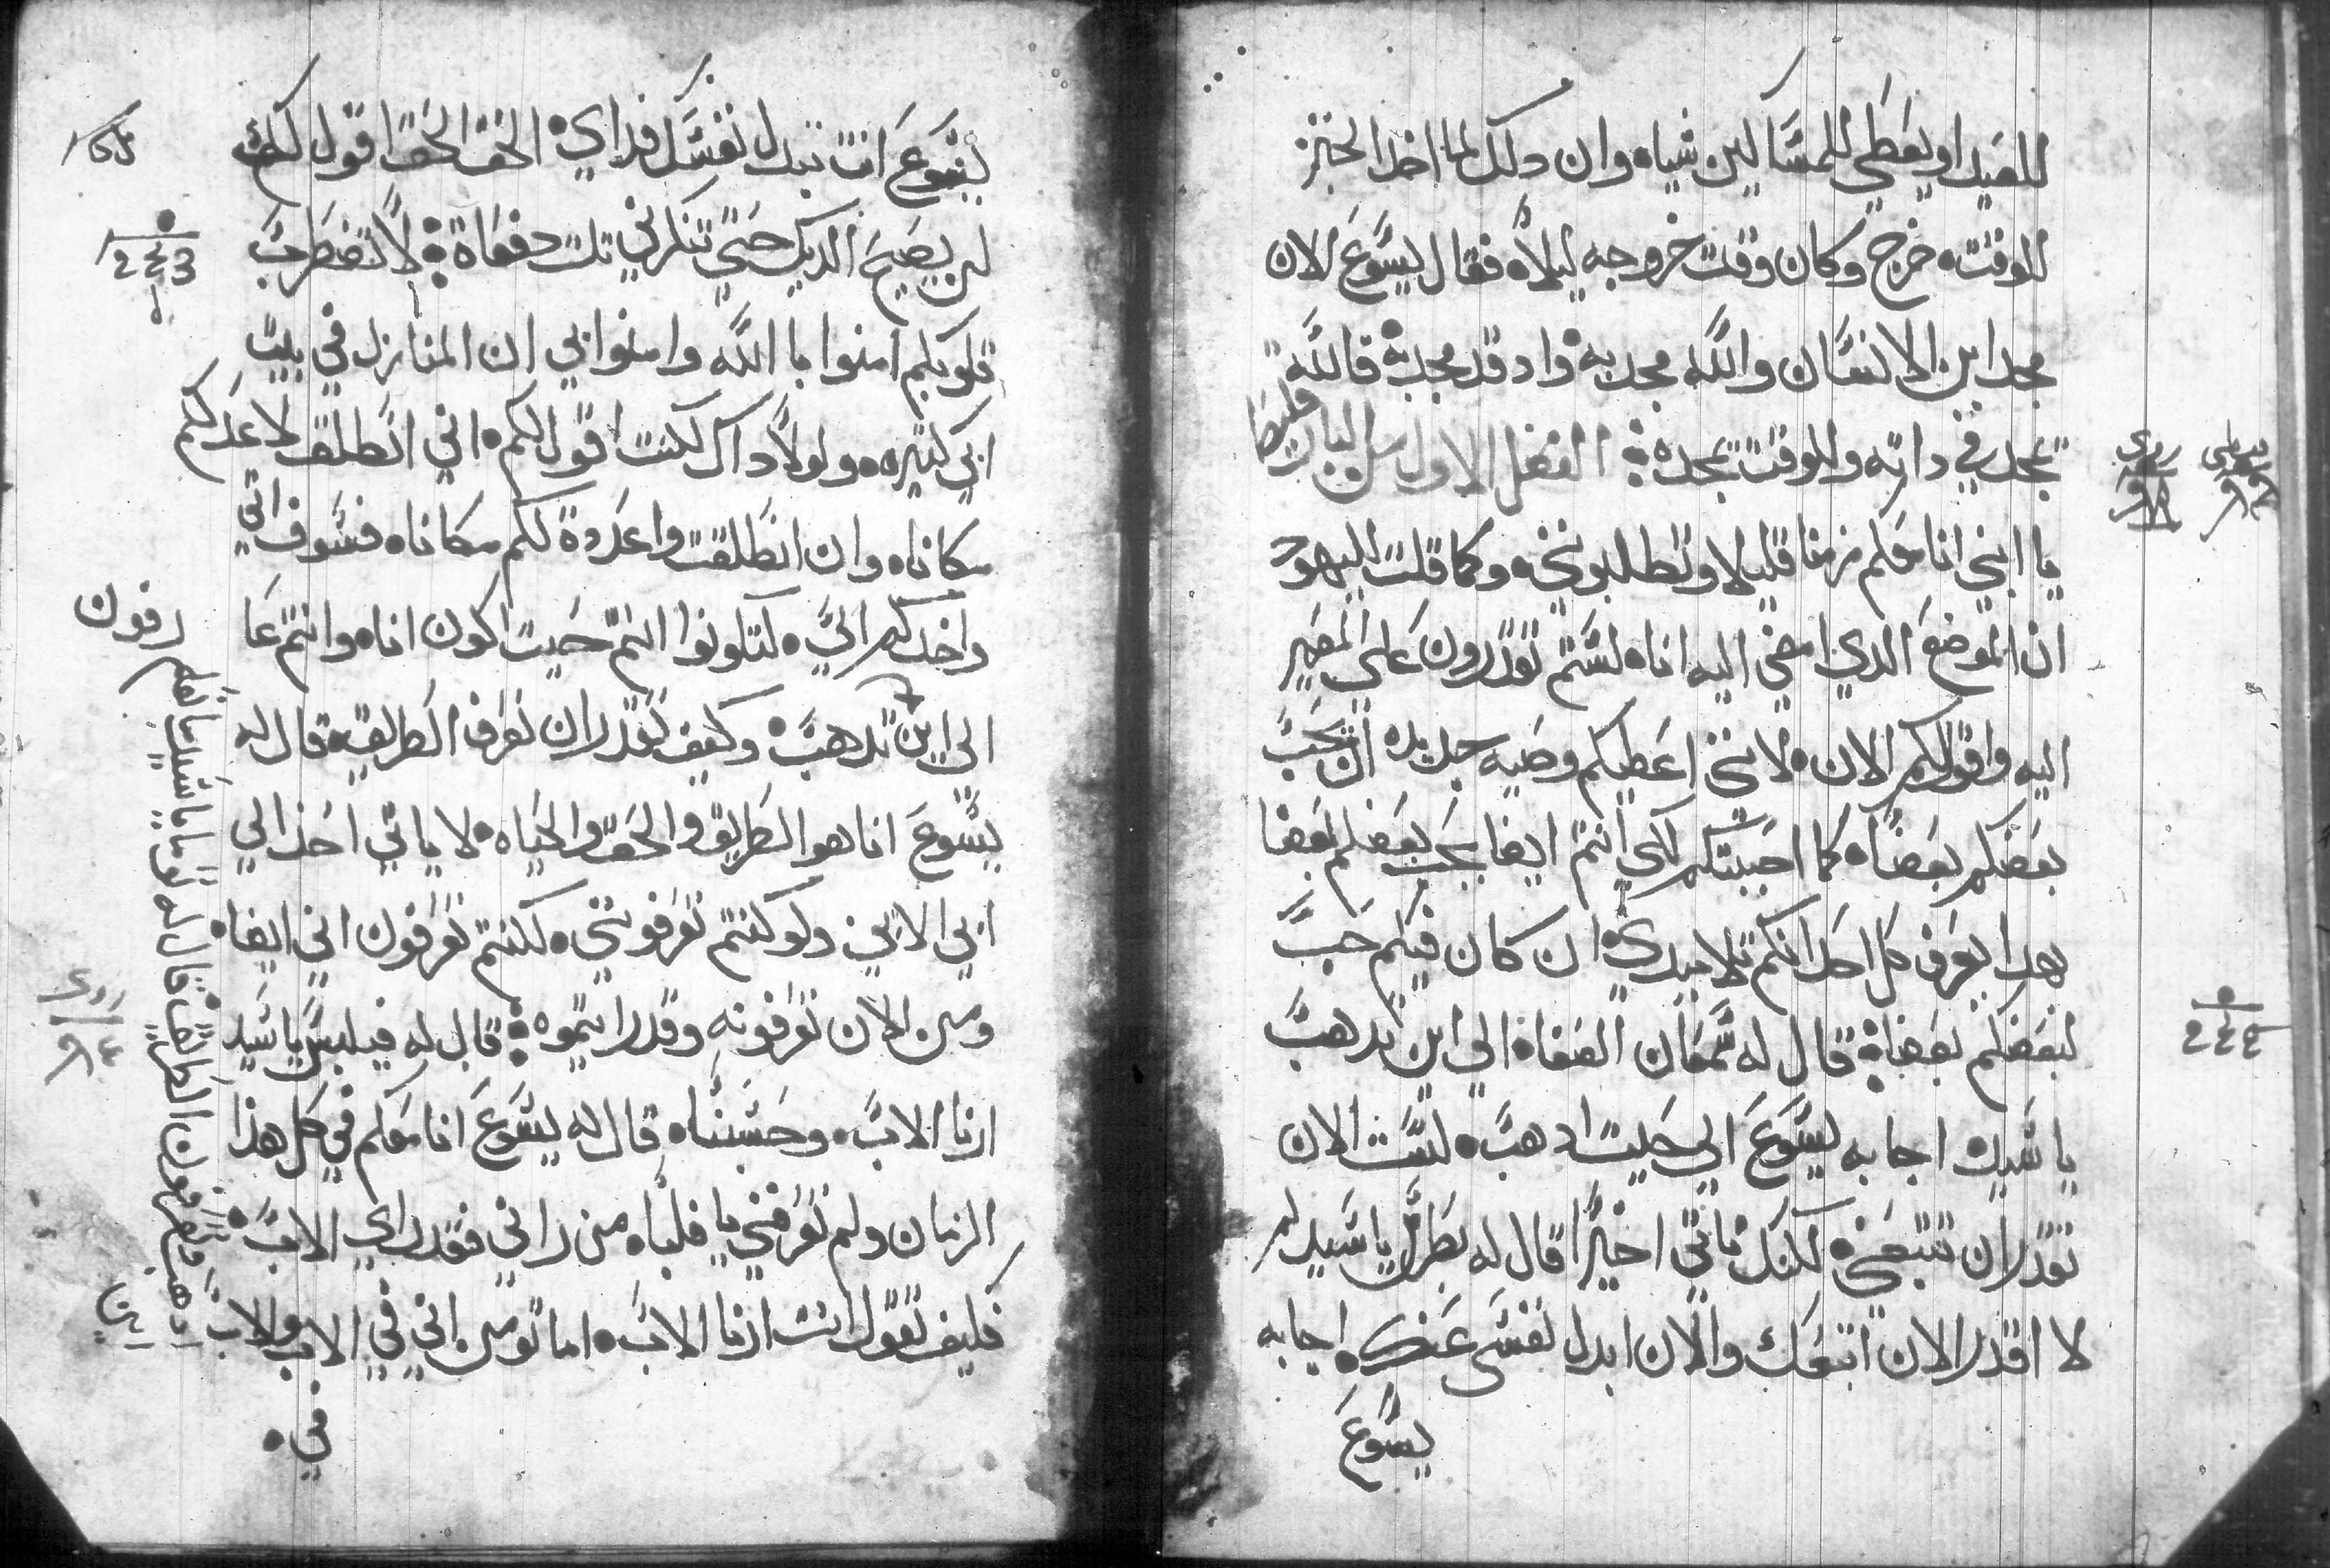 للعيد او يعطي للمساكين شياه وان دلك لما اخد الخبز
للوقته خرج وكان وقت خروجه ليلاه فقال يسوع الان
مجد ابن الانسان والله مجد به واد قد مجد به فالله
تمجد في داته وللوقت تمجده الفصل الاول من
يا ابني انا معكم زمنا قليلا وتطلبونني وكما قلت لليهود
ان الموضع الدي امضي اليه اناه لستم تقدرون علي المصير
اليه واقول لكم الان لانني اعطيكم وصيه جديده ان يحب
بعضكم بعضاه كما احببتكم لكي انتم ايضا يحب بعضكم بعضا
بهدا يعرف كل احد انكم تلاميدي ان كان فيكم حب
لبعضكم بعضاة قال له سمعان الصفاة الي اين تدهب
يا سيد اجابه يسوع الي حيت ادهب لست الان
تقدر ان تتبعني لكنك تاتي اخيرا قال له بطرس يا سيد لم
لا اقدر الان اتبعك والان ابدل نفسي عنك اجابه
يسوع
يسوع انت تبدل نفسك فداي الحق الحق اقول لك
لن يصيح الديك حتي تنكرني تلت دفعاة لا تضطرب
قلوبكم امنوا با الله وامنوا بي ان المنازل في بيت
ابي كتيره ولولا داك لكنت اقول لكم اني انطلق لاعد لكم
مكاناه وان انطلقت واعددة لكم مكاناه فسوف اتي
واخدكم الي لتكونوا انتم حيت اكون اناه وانتم عا
رفون
الي اين تدهب وكيف نقدر ان نعرف الطريق قال له
يسوع انا هو الطريق والحق والحياه لا ياتي احد الي
ابي الا بي ولو كنتم تعرفونني لكنتم تعرفون ابي ايضاه
ومن الان تعرفونه وقد رايتموه قال له فيلبس يا سيد
ارنا الاب وحسبناه قال له يسوع انا معكم في كل هذا
الزمان ولم تعرفني يا فلبس من راني فقد راي الاب
فكيف تقول انت ارنا الاب اما تومن اني في الاب والاب
في
اين ادهب وتعرفون الطريق قال له توما يا سيد ما نعلم